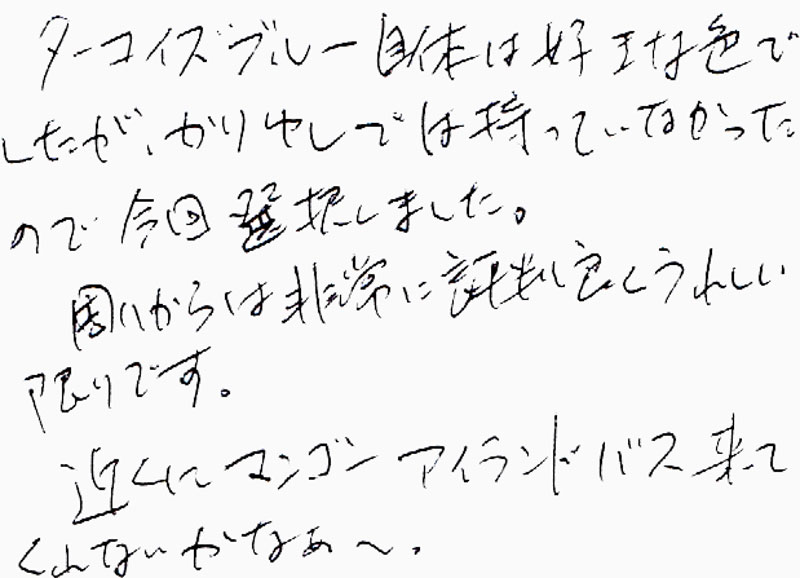 ターコイズブルー自体は好きな色で
したが、かりゆしでは持っていなかった
ので今回選択しました。
周りからは非常に評判良くうれしい
限りです。
近くにマンゴーアイランドバス来て
くんないかなぁ〜。